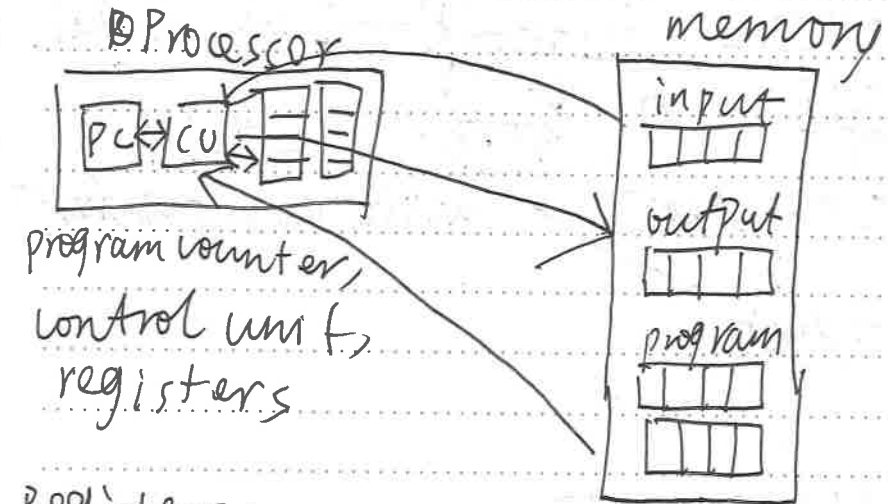 Processor
memory
PC
CU
input
output
program
program counter,
control unit,
registers